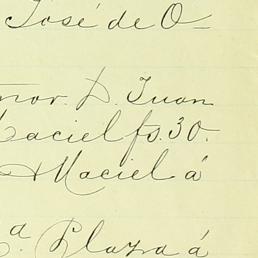 José de O-
mor. D. Juan
Maciel fs. 30.
Maciel á
a. Plaza á